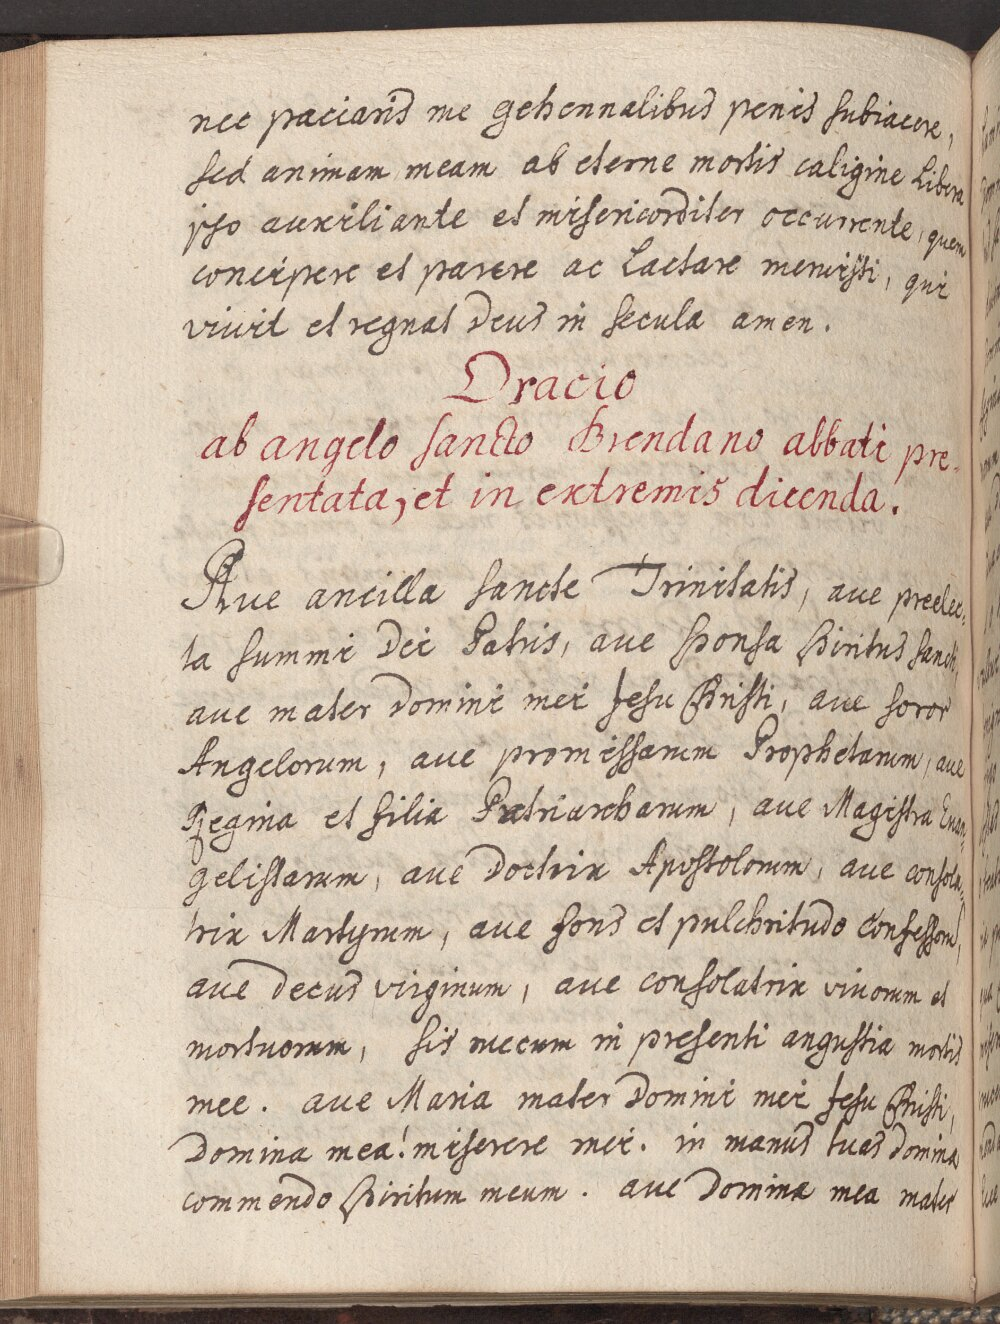 nec paciaris me gehennalibus penis subiacere,
sed animam meam ab eterne mortis caligine libera
ipso auxiliante et misericorditer occurrente, quem
concipere et parere ac Lactare meruisti, qui
vivit et regnat Deus in secula amen.
Oracio
ab angelo sancto Brendano abbati pre-
sentata, et in extremis dicenda.
Ave ancilla sancte Trinitatis, ave preelec-
ta summi Dei Patris, ave sponsa spiritus sancti,
ave mater Domini mei Jesu Christi, ave soror
Angelorum, ave promissarum Prophetarum, ave
Regina et filia Patriarcharum, ave Magistra Evan-
gelistarum, ave Doctrix Apostolorum, ave consola-
trix Martyrum, ave fons et pulchritudo Confessorum,
ave decus virginum, ave consolatrix vivorum et
mortuorum, sis mecum in presenti angustia mortis
mee. ave Maria mater Domini mei Jesu Christi,
Domina mea! miserere mei. in manus tuas Domina
commendo spiritum meum. ave Domina mea mater